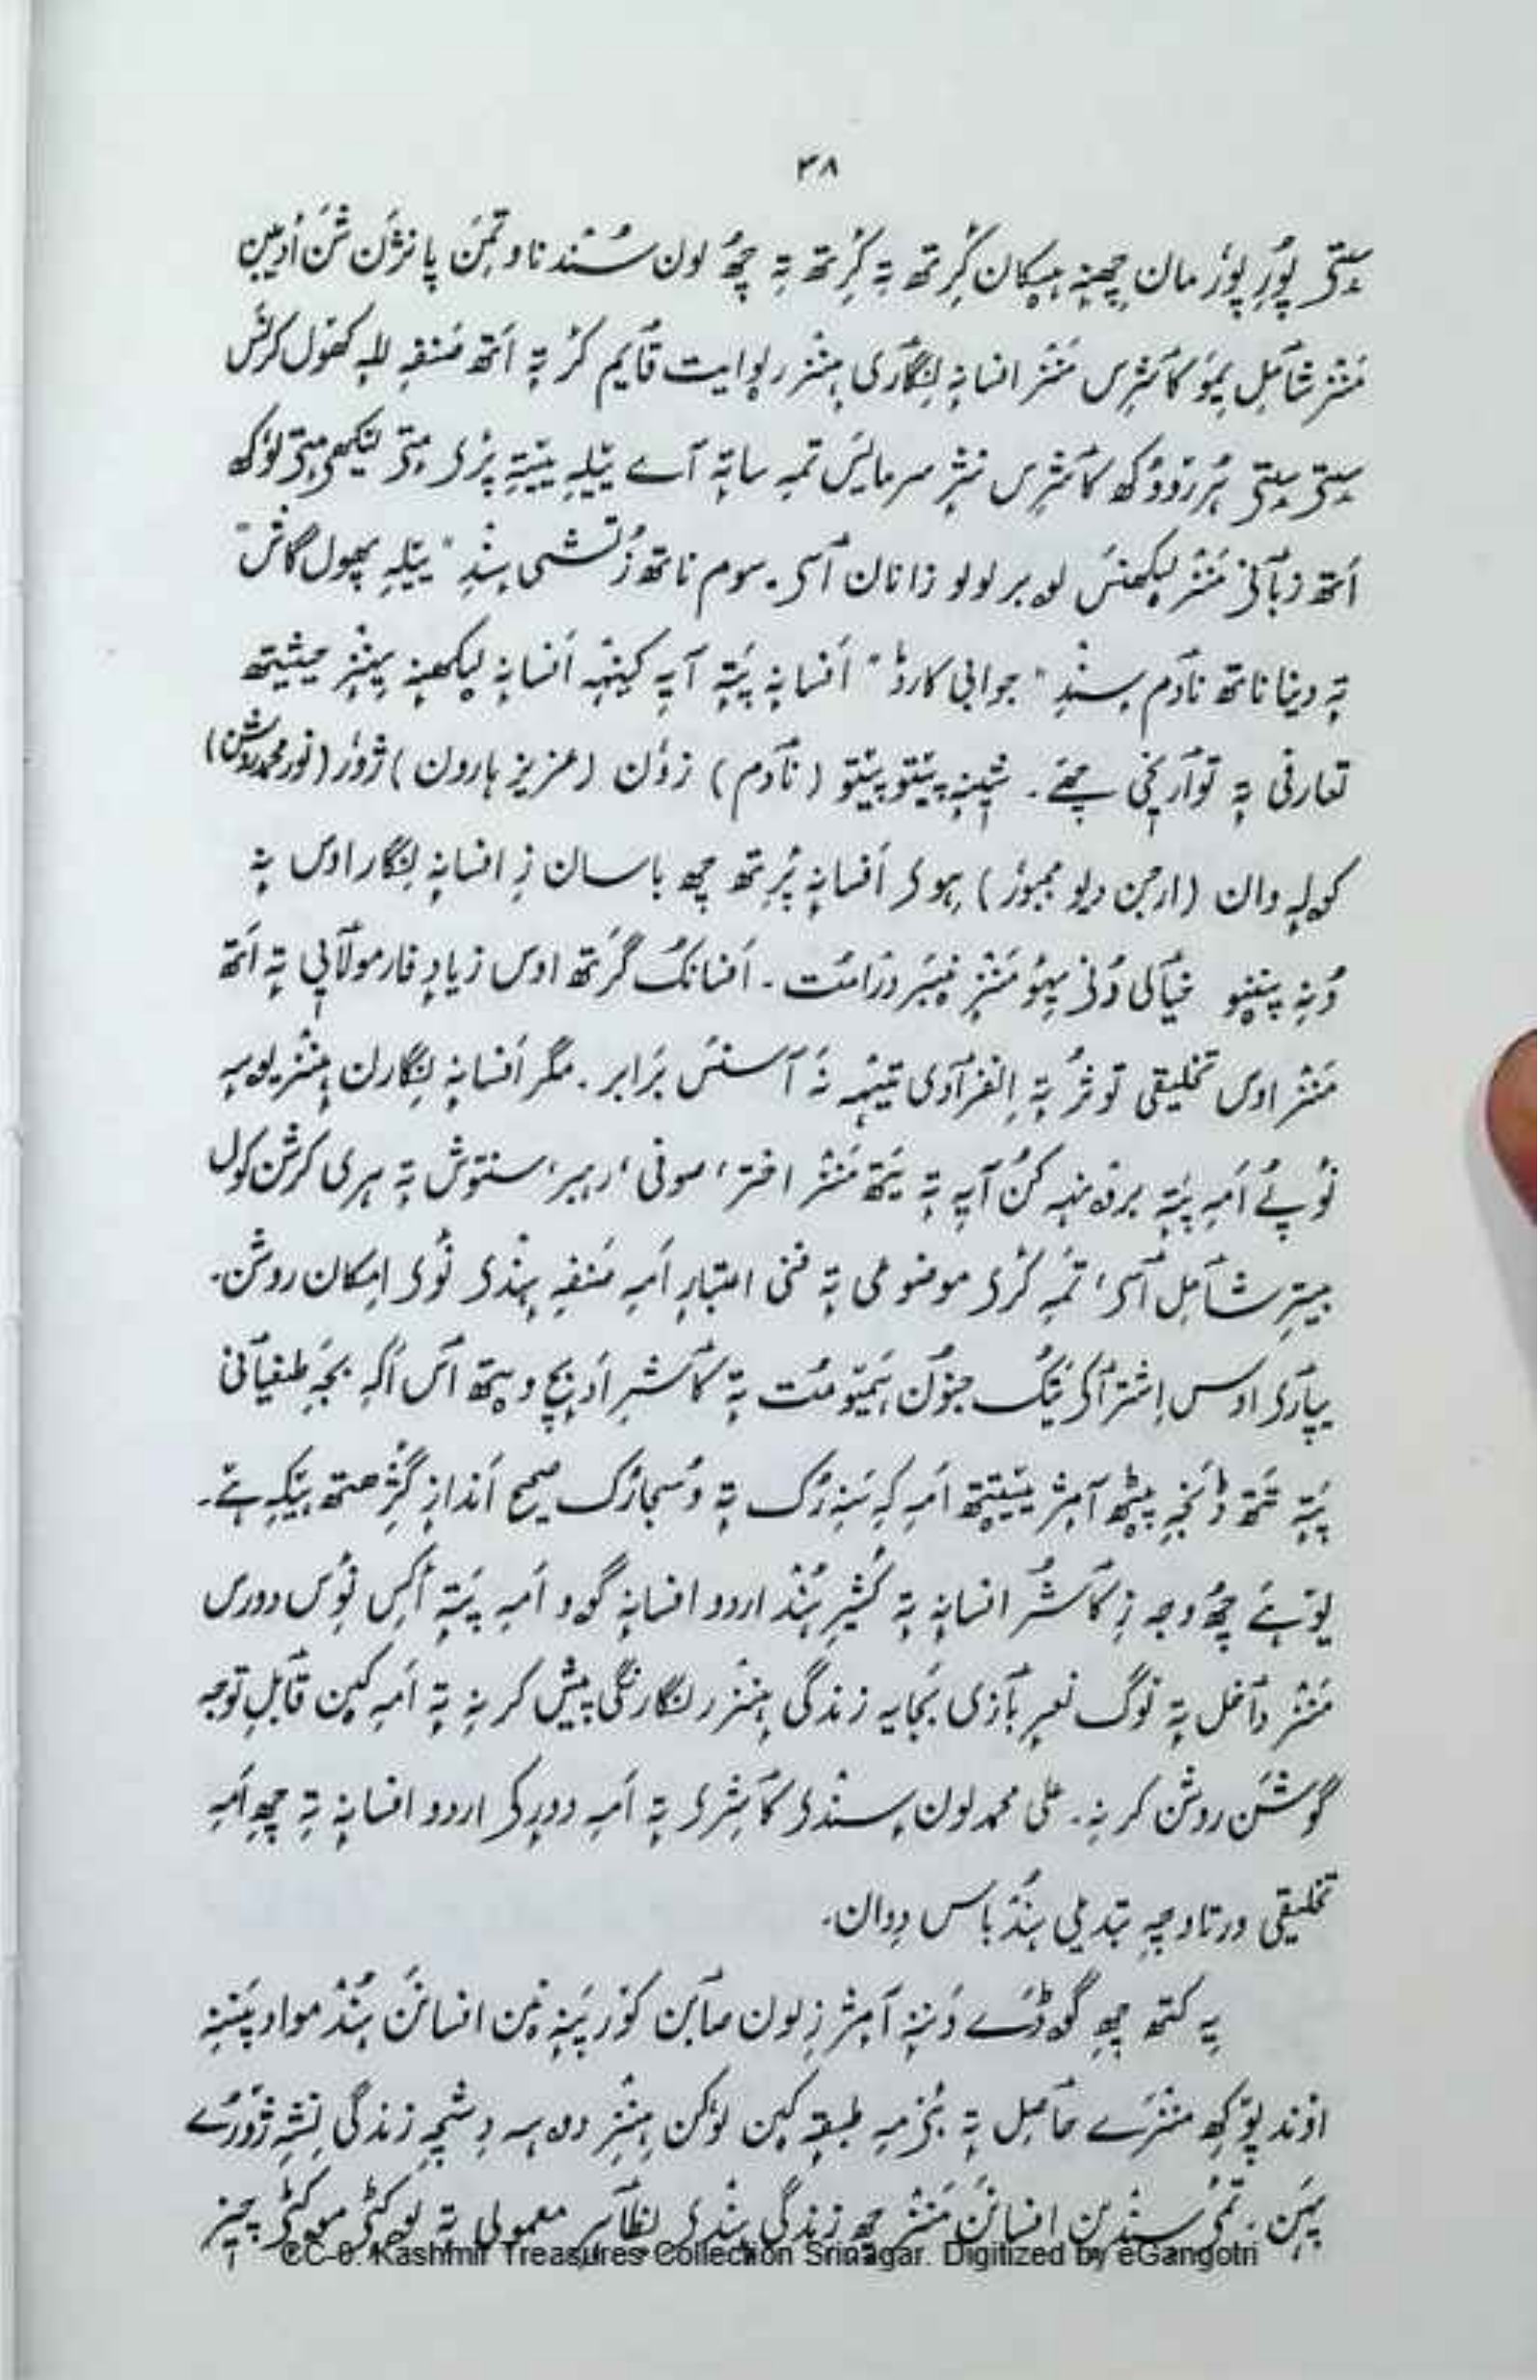 ۳۸
سٟتۍ پوٗرِ پوٗرٕ مان چھِنہٕ ہیکان کٔرِتھ تہٕ کٔرِتھ تہِ چھُ لون سُنٛد ناو تِمَن پانژن شن أدیبن
مَنٛز شٲمِل یِمَو کٲشرِس مَنٛز افسانہٕ نِگٲری ہٕنٛز روایت قٲیم کٔر تہٕ اَتھ صَنفہٕ للہٕ کھۄل کرنَس
سٟتۍ سٟتۍ بۆروُکھ کٲشرِس نثرٕ سرمایَس تمہِ ساتہٕ آے ییٚلہِ ییٚتہِ پٔرۍ مٕتۍ لیٚکھۍ مٕتۍ لوٗکھ
اَتھ زبٲنۍ مَنٛز لیکھنَس لۄبر لولو زانان ٲسۍ۔ سوم ناتھ زُتشی سٕنٛدِ "ییٚلہِ پھول گاش"
تہٕ دینا ناتھ نٲدم سٕنٛدِ "جوابی کارڈٕ" اَفسانہٕ پَتہٕ آیہِ کیٚنٛہہ اَفسانہٕ لیکھنہٕ یِہنٛز حیثیتھ
تعارفی تہٕ توٲریخی چھےٚ۔ شیٖنہٕ پیٚتوپیٚتو (نٲدم) زوٗن (عزیز ہارون) ژوٗر (نورمحمدروشن)
کۄلہٕ وان (ارجن دیو مجبوٗر) ہِوۍ اَفسانہٕ پٔرِتھ چھُ باسان زِ افسانہٕ نِگار اوس نہٕ
وُنہِ پننیو خیٲلی دُنی یہو مَنٛزٕ نیٚبر درامُت۔ اَفسانُک گَرٕتھ اوس زیادٕ فارمولٲیی تہٕ اَتھ
مَنٛز اوس تخلیقی توثر تہٕ اِنفرٲدی تیٚنہہ نَہ آسنَس بَرابر۔ مگر اَفسانہٕ نِگارن ہٕنٛز یۄسہٕ
نٔو پَے اَمہِ پَتہٕ برونٛہہ کُن آیہِ تہٕ یَتھ مَنٛز اختر، صوفی، رہبر، سنتوش تہٕ ہری کرشن کول
بیترِ شٲمِل ٲسۍ، تمہِ کٔرۍ موضوعی تہٕ فنی اعتبارِ اَمہِ صَنفہٕ ہٕنٛدۍ نٔوۍ امکان روشن۔
بپٲرۍ اوس اِشترٲکی یتُک جنوٗن ہیٚمیومُت تہٕ کٲشرِ ادبٕچ ویتھ ٲس اَکہِ بجہِ طغیٲنی
پَتہٕ تَتھ ڈَنٛجہِ پیٚٹھ آمٕژ ییٚتیتھ اَمہِ کہِ سَنہِ رُک تہٕ وُسجارُک صحیح اَندازٕ گژھتھ ہیٚکہِ ہے۔
یۄہَے چھُ وجہ زِ کٲشُر افسانہٕ تہٕ کٔشیٖرِ ہُنٛد اردو افسانہٕ گوو اَمہِ پَتہٕ اَکِس نٔوِس دورس
مَنٛز دٲخل تہٕ لۆگ نعرٕ بٲزی بَجایہِ زندگی ہٕنٛز رنگارنگی پیش کرنہِ تہٕ اَمہِ کین قٲبلِ توجہ
گوشَن روشن کرنہِ۔ علی محمد لون سٕنٛدۍ کٲشرۍ تہٕ اَمہِ دورٕکۍ اردو افسانہٕ تہِ چھِ اَمہِ
تخلیقی ورتاوچہِ تبدیلی ہُنٛد باس دِوان۔
یہِ کتھ چھِ گۄڈَے وَننہٕ آمٕژ زِ لون صٲبن کۆر پَنہٕ نین افسانَن ہُنٛد مواد پَننہِ
اَنٛد پۆکھٕ مَنٛزَے حٲصِل تہٕ بُرٛ مہِ طبقہٕ کین لوٗکن ہٕنٛزِ دۄہہ دِشچہِ زندگی نِشہِ ژوٗرَے
پہَن۔ تٔمۍ سٕنٛدین افسانَن مَنٛز چھِ زندگی ہٕنٛدۍ بظٲہر معمولی تہٕ لۄکٹۍ موکٹۍ چیز
CC-0. Kashmir Treasures Collection Srinagar. Digitized by eGangotri